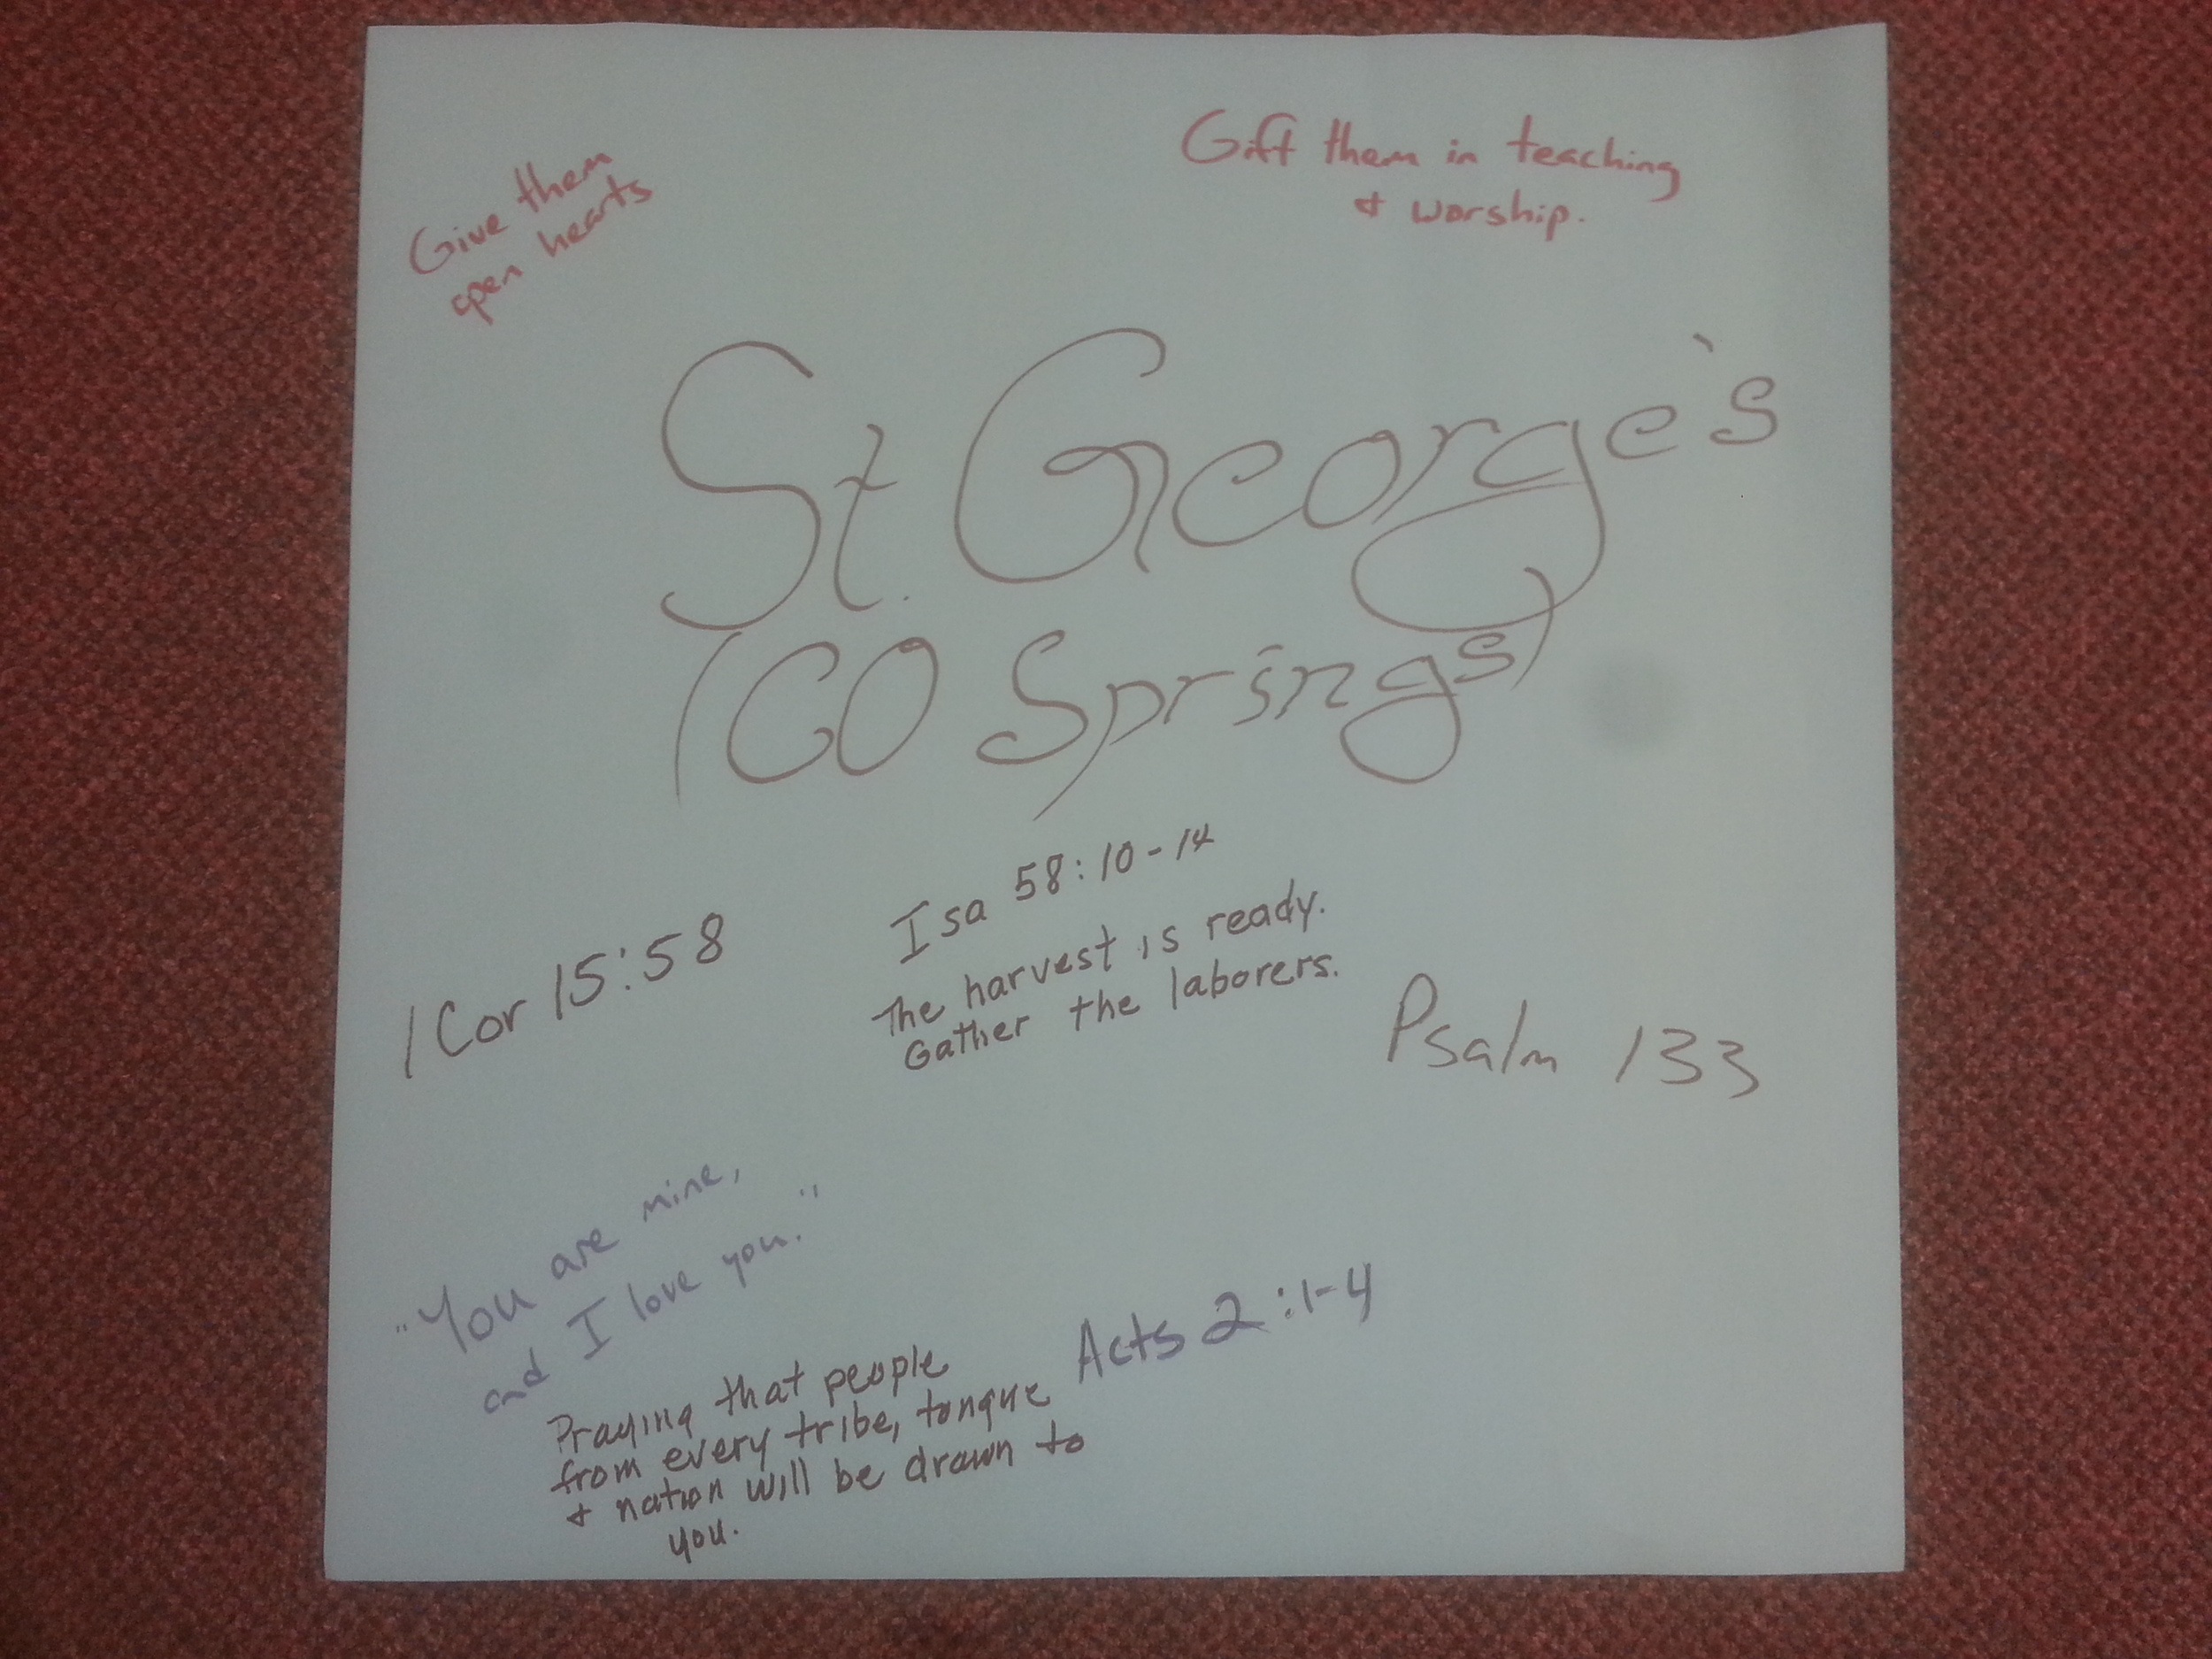 Give them
open hearts
Gift them in teaching
& worship.
St. George's
(CO Springs)
Isa 58:10-14
The harvest is ready.
Gather the laborers.
1 Cor 15:58
Psalm 133
"You are mine,
and I love you."
Acts 2:1-4
Praying that people
from every tribe, tongue
& nation will be drawn to
you.